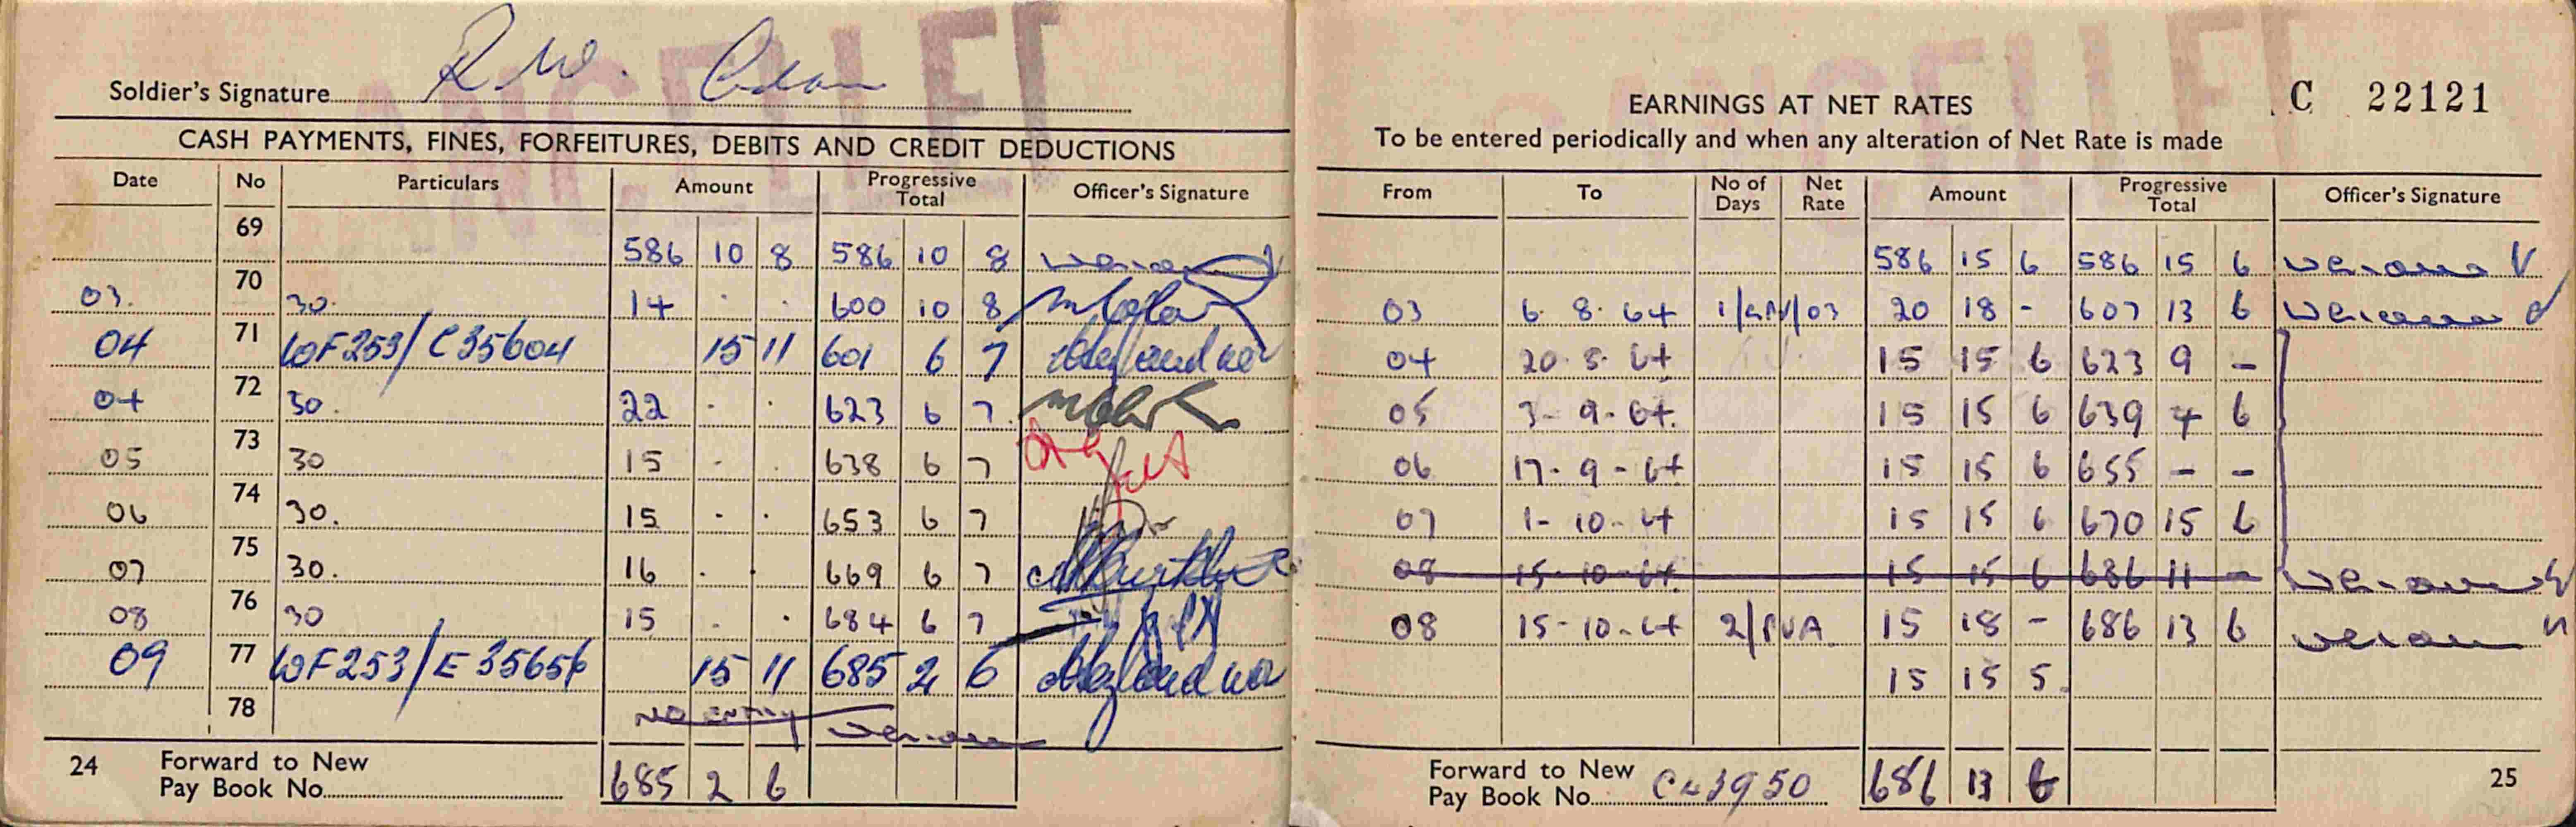 CANCELLED
CANCELLED
Soldier's Signature R.W.
CASH PAYMENTS, FINES, FORFEITURES, DEBITS AND CREDIT DEDUCTIONS
Date No Particulars Amount Progressive Total Officer's Signature
69 586 10 8 586 10 8
03. 70 30. 14 . . 600 10 8
04 71 WF253/C35604 15 11 601 6 7
04 72 30. 22 . . 623 6 7
05 73 30 15 . . 638 6 7
06 74 30. 15 . . 653 6 7
07 75 30. 16 . . 669 6 7
08 76 30 15 . . 684 6 7
09 77 WF253/E35656 15 11 685 2 6
78 NO ENTRY
24 Forward to New
Pay Book No. 685 2 6
C 22121
EARNINGS AT NET RATES
To be entered periodically and when any alteration of Net Rate is made
From To No of Days Net Rate Amount Progressive Total Officer's Signature
586 15 6 586 15 6
03 6. 8. 64 20 18 - 607 13 6
04 20. 8. 64 15 15 6 623 9 -
05 3-9-64. 15 15 6 639 4 6
06 17-9-64 15 15 6 655 - -
07 1-10-64 15 15 6 670 15 6
08 15-10-64. 15 15 6 686 11 -
08 15-10-64 15 18 - 686 13 6
15 15 5.
Forward to New
Pay Book No. C43950 686 13 6
25